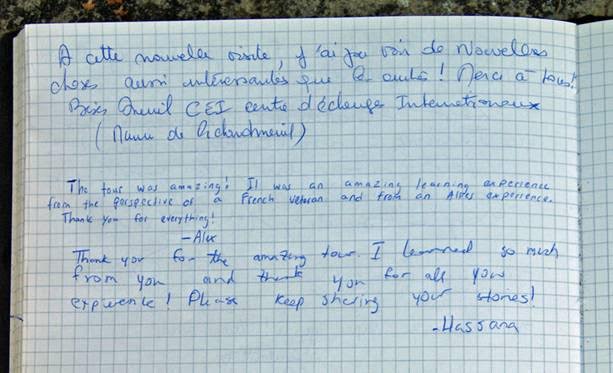 A cette nouvelle visite, j'ai pu voir de Nouvelles
choses aussi intéressantes que les autres! Merci à tous!
CEI centre d'échanges Internationaux
(
The tour was amazing! It was an amazing learning experience
from the perspective of a French veteran and from an experience.
Thank you for everything!
-Alex
Thank you for the amazing tour. I learned so much
from you and thank you for all your
experience! Please keep sharing your stories!
-Hassana